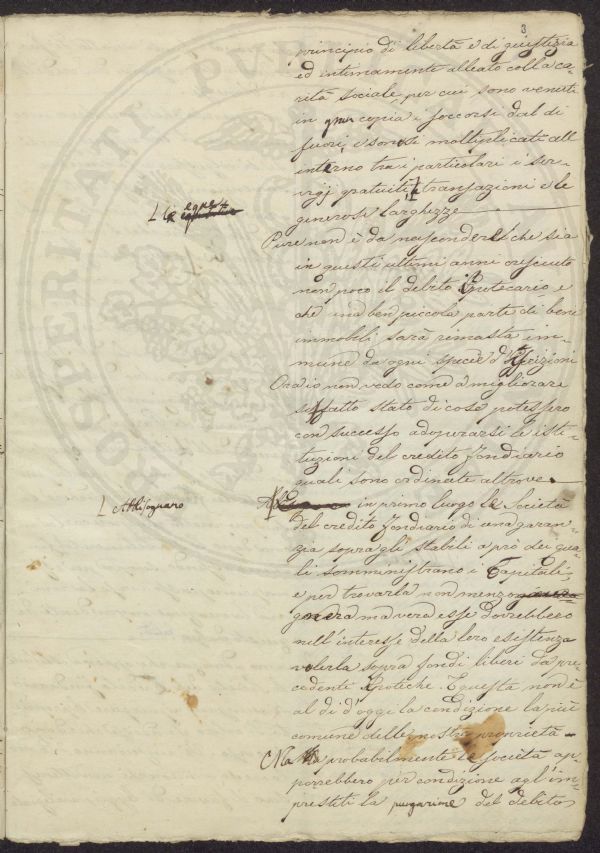 3
principio di libertà e di giustizia
ed intimamente alleato colla ca-
rità sociale, per cui sono venuti
in gran copia i soccorsi dal di
fuori, e sonosi moltiplicati all
interno tra i particolari i ser-
vigj gratuiti, le transazioni e le
generose larghezze
Pure non è da nascondersi che sia
in questi ultimi anni cresciuto
non poco il debito Ipotecario, e
che una ben piccola parte di beni
immobili sarà rimasta im-
mune da ogni specie d'Iscrizioni
Ora io non vedo come a migliorare
siffatto stato di cose potessero
con successo adoperarsi le isti-
tuzioni del credito fondiario
quali sono ordinate altrove.
L Abbisognano
in primo luogo le Società
del credito fondiario di una garan-
zia sopra gli stabili a prò dei qua-
li somministrano i Capitali,
e per trovarla non menzo
gnera ma vera esse dovrebbero
nell'interesse della loro esistenza
volerla sopra fondi liberi da pre-
cedenti Ipoteche. E questa non è
al dì d'oggi la condizione la più
comune delle nostre proprietà
Ma probabilmente le società ap-
porrebbero per condizione agl'im-
prestiti la purgazione del debito